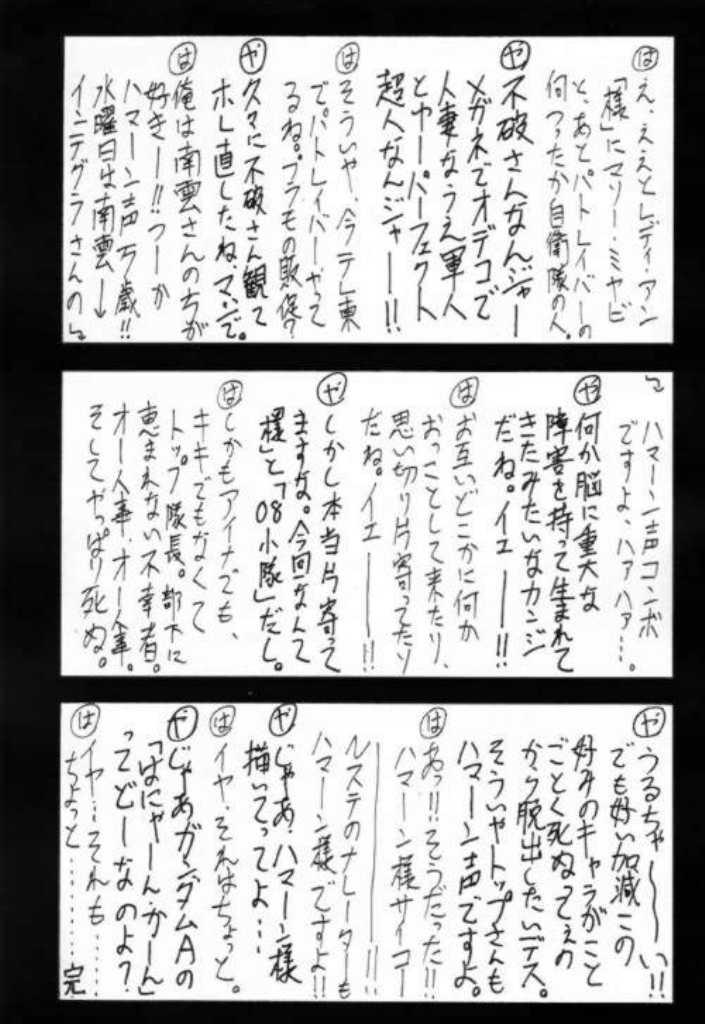 は え、ええとレディ・アン
「様」にマリー・ミヤビ
と、あとパトレイバーの
何つったか自衛隊の人。
や 不破さんなんジャー
メガネでオデコで
人妻なうえ軍人
とやーパーフェクト
超人なんジャーー!!
は そういや、今テレ東
でパトレイバーやって
るね。プラモの販促?
や 久々に不破さん観て
ホレ直したね、マジで。
は 俺は南雲さんのちが
好きー!!つーか
ハマーン声万歳!!
水曜日は南雲→
インテグラさんの↵
↵ハマーン声コンボ
ですよ、ハァハァ…。
や 何か脳に重大な
障害を持って生まれて
きたみたいなカンジ
だね。イエーー!!
は お互いどこかに何か
おっことして来たり、
思い切り片寄ってたり
だね。イエーー!!
や しかし本当片寄って
ますな。今回なんて
様」と「08小隊」だし。
は しかもアイナでも、
キキでもなくて
トップ隊長。部下に
恵まれない不幸者。
オー人事、オー人事。
そしてやっぱり死ぬ。
や うるちゃーーい!!
でも好い加減この
好みのキャラがこと
ごとく死ぬってぇの
から脱出したいデス。
そういやトップさんも
ハマーン声ですよ。
は あっ!!そうだった!!
ハマーン様サイコー
ーーーー!!
ルステのナレーターも
ハマーン様ですよ!!
や じゃあ、ハマーン様
描いてってよ…
は イヤ、それはちょっと。
や じゃあガンダムAの
「はにゃーん・かーん」
ってどーなのよ?
は イヤ…それも………
ちょっと…………完